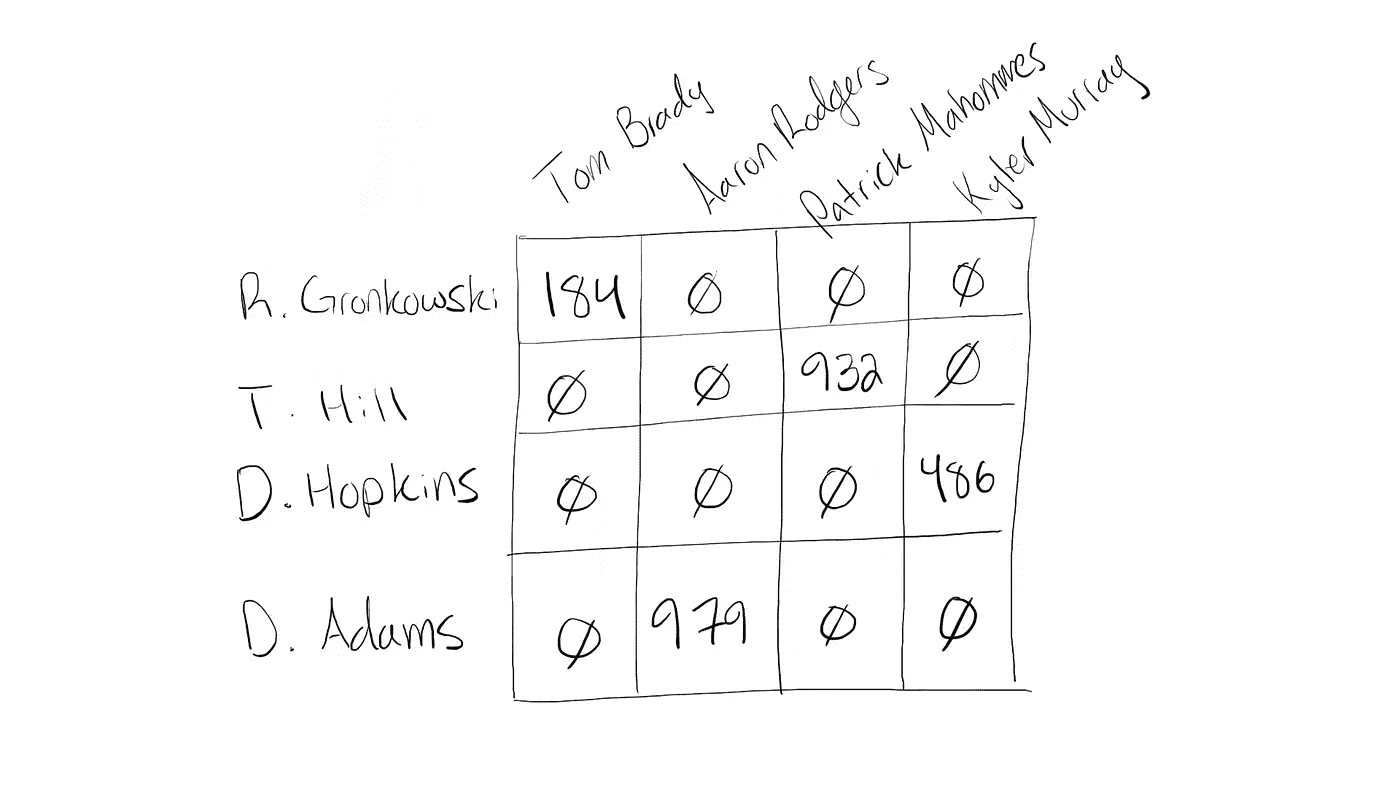 Tom Brady
Aaron Rodgers
Patrick Mahommes
Kyler Murray
R. Gronkowski 184 Ø Ø Ø
T. Hill Ø Ø 932 Ø
D. Hopkins Ø Ø Ø 486
D. Adams Ø 979 Ø Ø